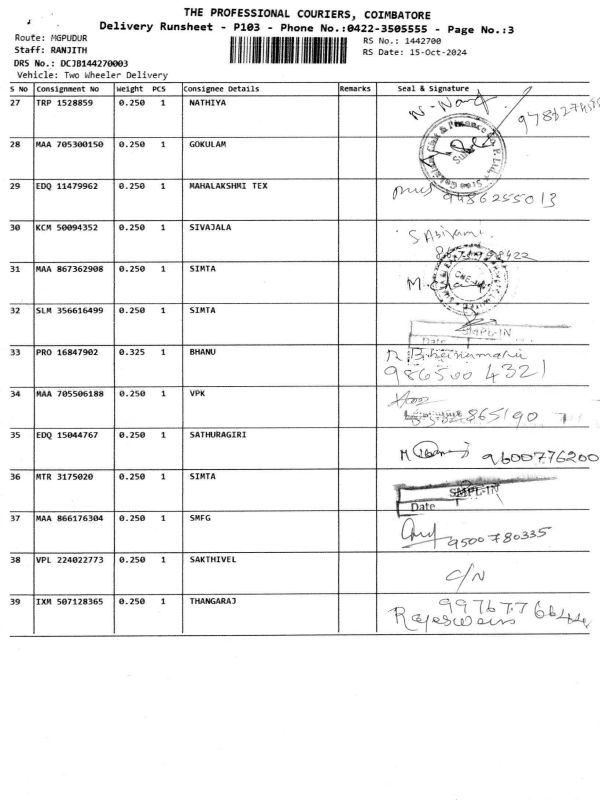 THE PROFESSIONAL COURIERS, COIMBATORE
Delivery Runsheet - P103 - Phone No.:0422-3505555 - Page No.:3
Route: MGPUDUR
RS No.: 1442700
Staff: RANJITH
RS Date: 15-Oct-2024
DRS No.: DCJB144270003
Vehicle: Two Wheeler Delivery
S No Consignment No Weight PCS Consignee Details Remarks Seal & Signature
27 TRP 1528859 0.250 1 NATHIYA
28 MAA 705300150 0.250 1 GOKULAM
29 EDQ 11479962 0.250 1 MAHALAKSHMI TEX
9486255013
30 KCM 50094352 0.250 1 SIVAJALA
31 MAA 867362908 0.250 1 SIMTA
32 SLM 356616499 0.250 1 SIMTA
SMPL-IN
Date
33 PRO 16847902 0.325 1 BHANU
986500 4321
34 MAA 705506188 0.250 1 VPK
865190
35 EDQ 15044767 0.250 1 SATHURAGIRI
9600776200
36 MTR 3175020 0.250 1 SIMTA
SMPL-IN
Date
37 MAA 866176304 0.250 1 SMFG
9500780335
38 VPL 224022773 0.250 1 SAKTHIVEL
C/N
39 IXM 507128365 0.250 1 THANGARAJ